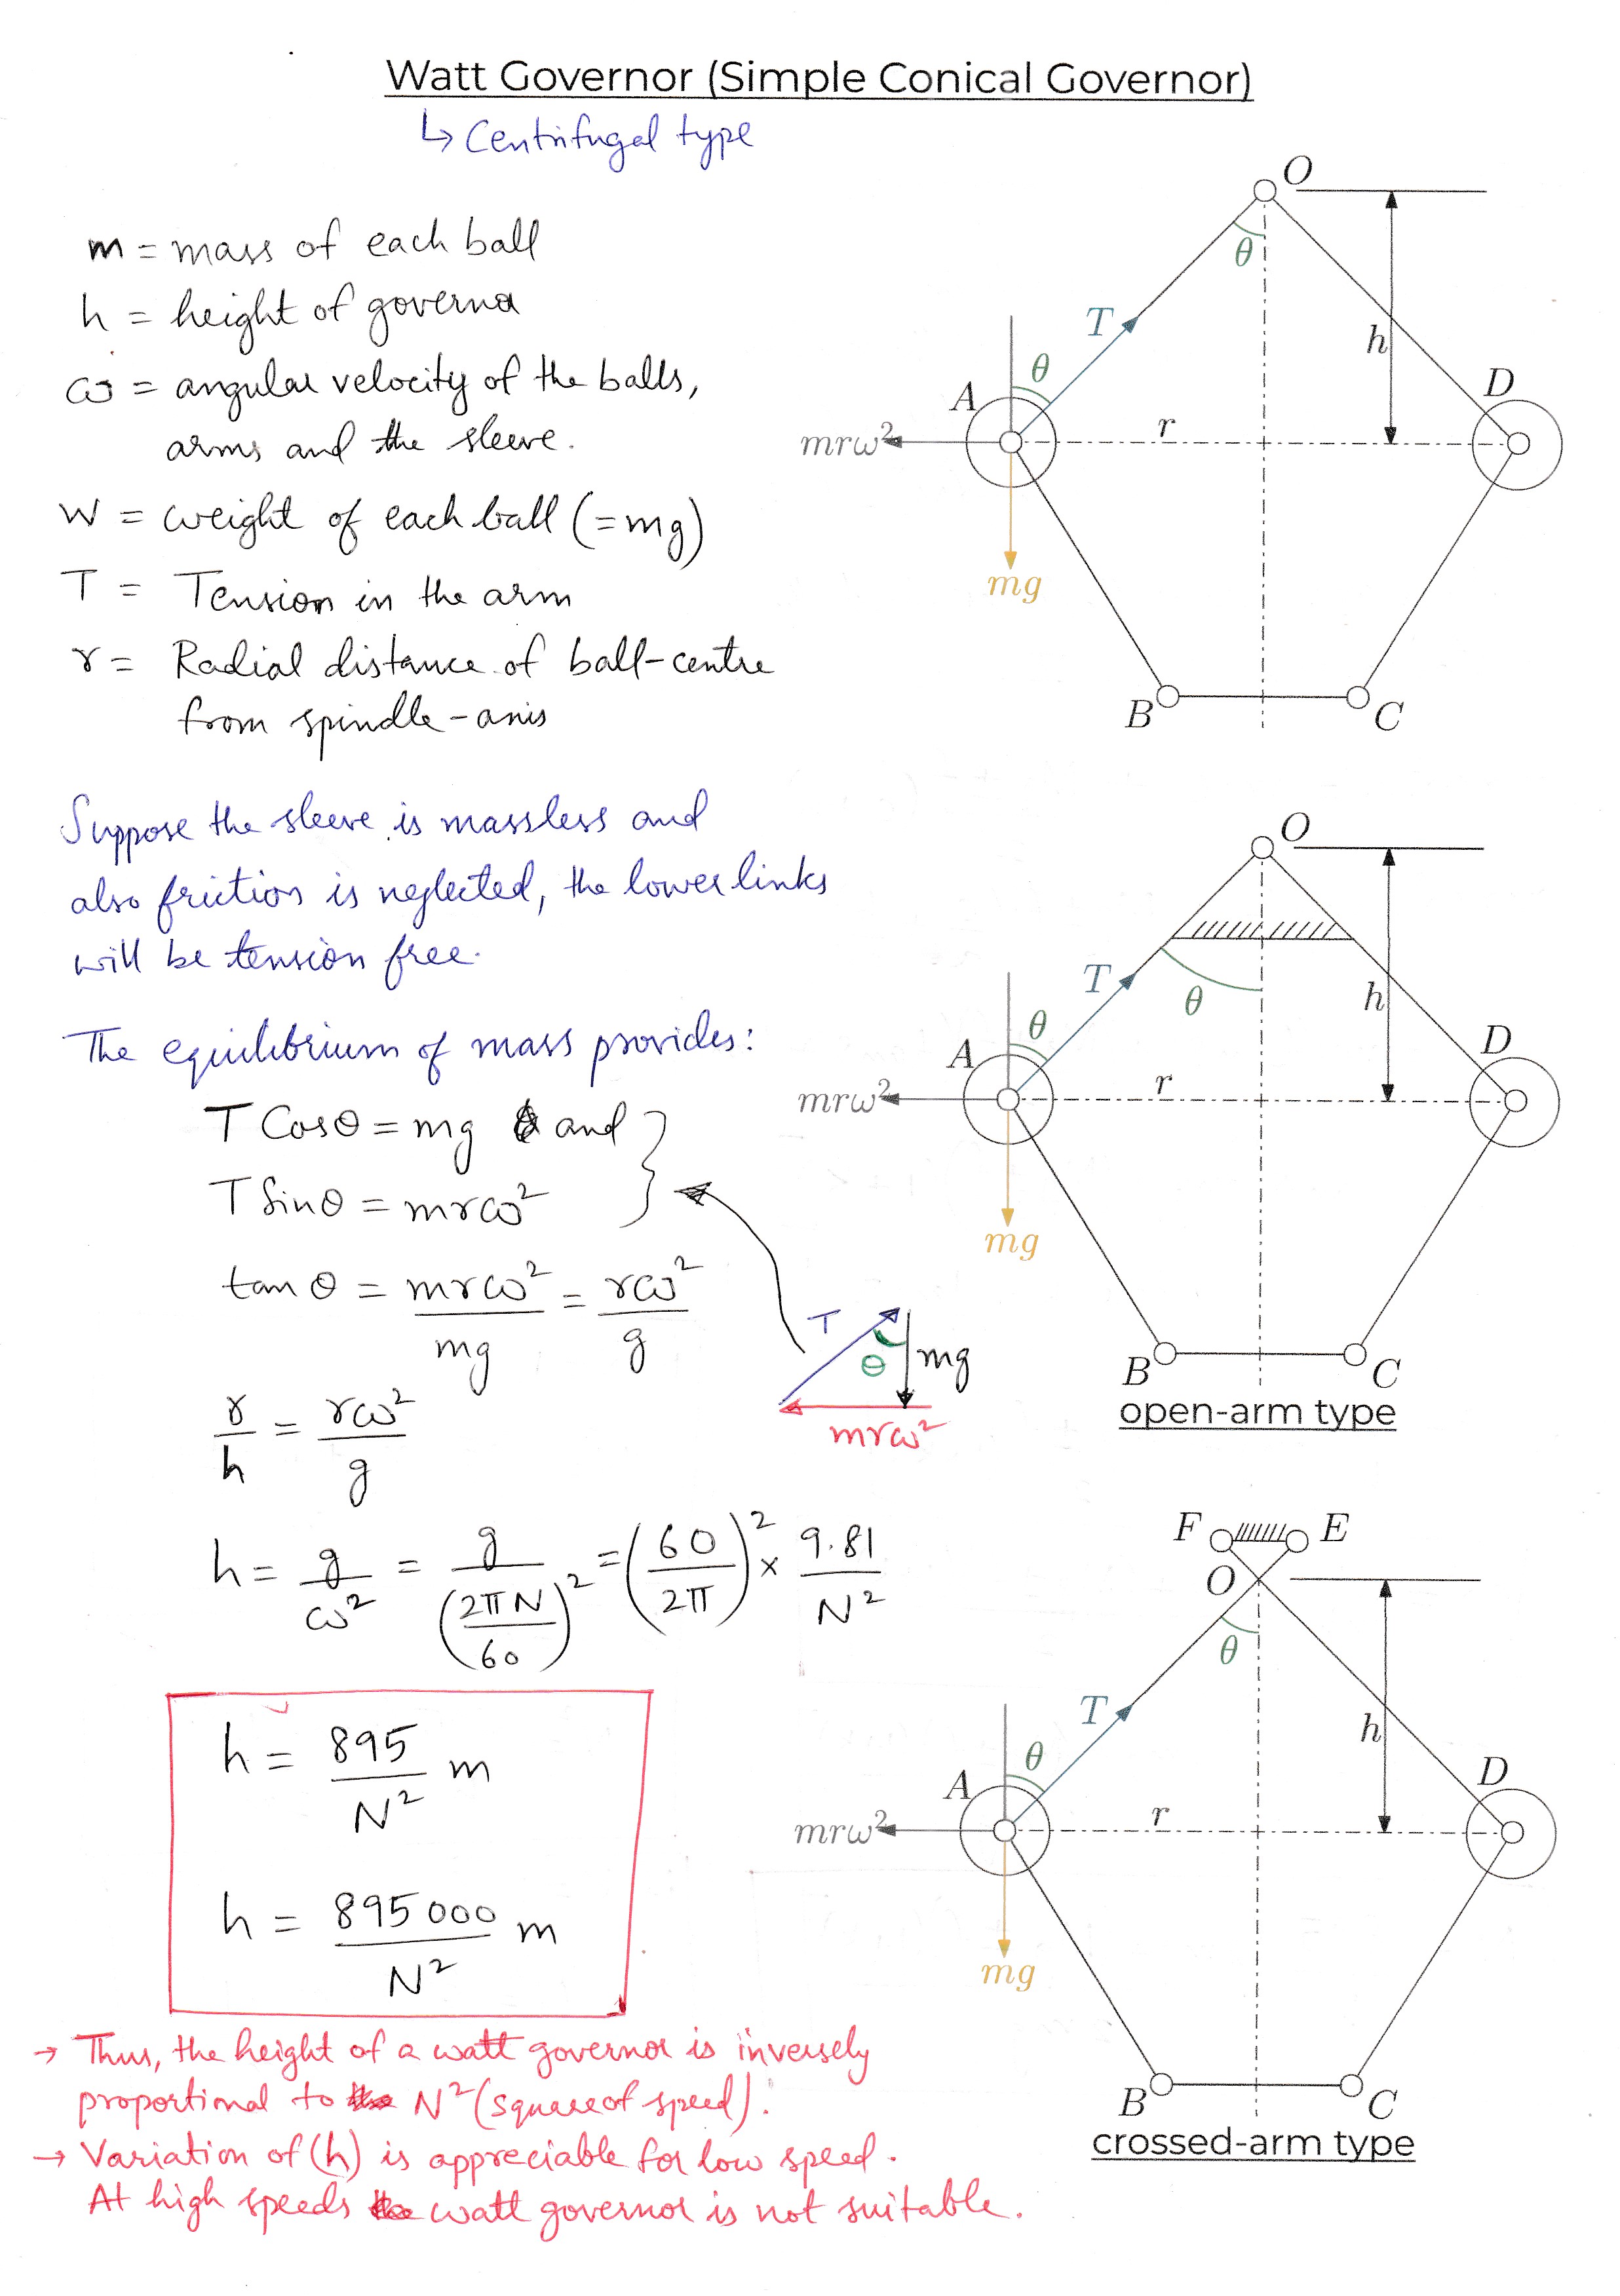 Watt Governor (Simple Conical Governor)
↳ Centrifugal type
m = mass of each ball
h = height of governor
ω = angular velocity of the balls,
arms and the sleeve.
W = weight of each ball (=mg)
T = Tension in the arm
r = Radial distance of ball-centre
from spindle-axis
Suppose the sleeve is massless and
also friction is neglected, the lower links
will be tension free.
The equilibrium of mass provides:
T Cosθ = mg and
T Sinθ = mrω²
tan θ = mrω²/mg = rω²/g
r/h = rω²/g
h = g/ω² = g/(2πN/60)² = (60/2π)² × 9.81/N²
h = 895/N² m
h = 895000/N² m
→ Thus, the height of a watt governor is inversely
proportional to N² (square of speed).
→ Variation of (h) is appreciable for low speed.
At high speeds watt governor is not suitable.
T
θ
mg
mrω²
O
θ
T
h
θ
A
D
r
mrω²
mg
B
C
O
T
θ
h
θ
A
D
r
mrω²
mg
B
C
open-arm type
F
E
O
θ
T
h
θ
A
D
r
mrω²
mg
B
C
crossed-arm type